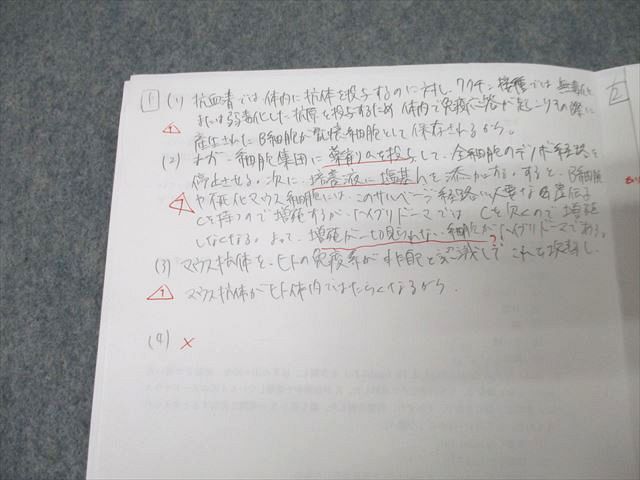 1 (1) 抗血清では体内に抗体を投与するのに対し、ワクチン接種では無毒化
または弱毒化した抗原を投与するため体内で免疫応答が起こりその際に
産生されたB細胞が記憶細胞として保存されるから。
(2) まず、細胞集団に薬剤Aを投与して、全細胞のデノボ経路を
停止させる。次に、培養液に塩基を添加する。すると、B細胞
や不死化マウス細胞には、このサルベージ経路に必要な遺伝子
Cを持つので増殖するが、ハイブリドーマではCを欠くので増殖
しなくなる。よって、増殖が一切見られない細胞がハイブリドーマである。
??
(3) マウス抗体を、ヒトの免疫系が非自己と認識して これを攻撃し
マウス抗体がヒト体内ではたらくなるから。
(4) ×
2